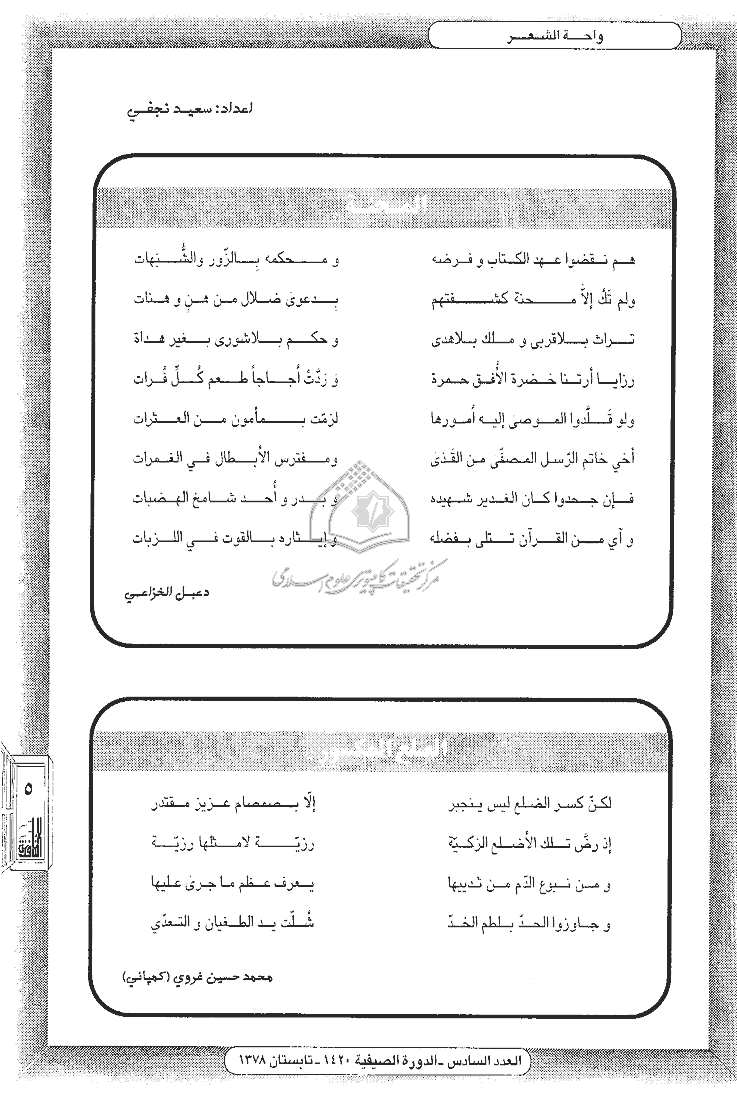 واحـة الشـعـر
اعداد: سعيـد نجفـي
المحنة
هم نقضوا عهد الكتاب و فرضه و محكمه بالزّور والشُّبَهات
ولم تَكُ إلاّ محنة كشفتهم بدعوى ضلال من هنٍ و هنات
تراث بلاقربى و ملك بلاهدى و حكم بلاشورى بغير هداة
رزايا أرتنا خضرة الأُفق حمرة وَ رَدَّتْ أُجاجاً طعم كُلِّ فُرات
ولو قَلَّدوا الموصى إليه أُمورها لزمّت بمأمون من العثرات
أخي خاتم الرّسل المصفّى من القَذى ومفترس الأبطال في الغمرات
فإن جحدوا كان الغدير شهيده و بدر و أُحد شامخ الهضبات
و آي من القرآن تتلى بفضله و إيثاره بالقوت في اللزبات
مركز تحقيقات كامپيوترى علوم اسلامى
دعبل الخزاعي
الضلع المكسور
لكنّ كسر الضلع ليس ينجبر إلّا بصمصام عزيز مقتدر
إذ رضَّ تلك الأضلع الزكيّة رزيّة لامثلها رزيّة
و من نبوع الدّم من ثدييها يعرف عظم ما جرى عليها
و جاوزوا الحدّ بلطم الخدّ شُلّت يد الطغيان و التعدّي
محمد حسين غروي (كمپاني)
٥
العدد السادس ـ الدورة الصيفية ١٤٢٠ ـ تابستان ١٣٧٨